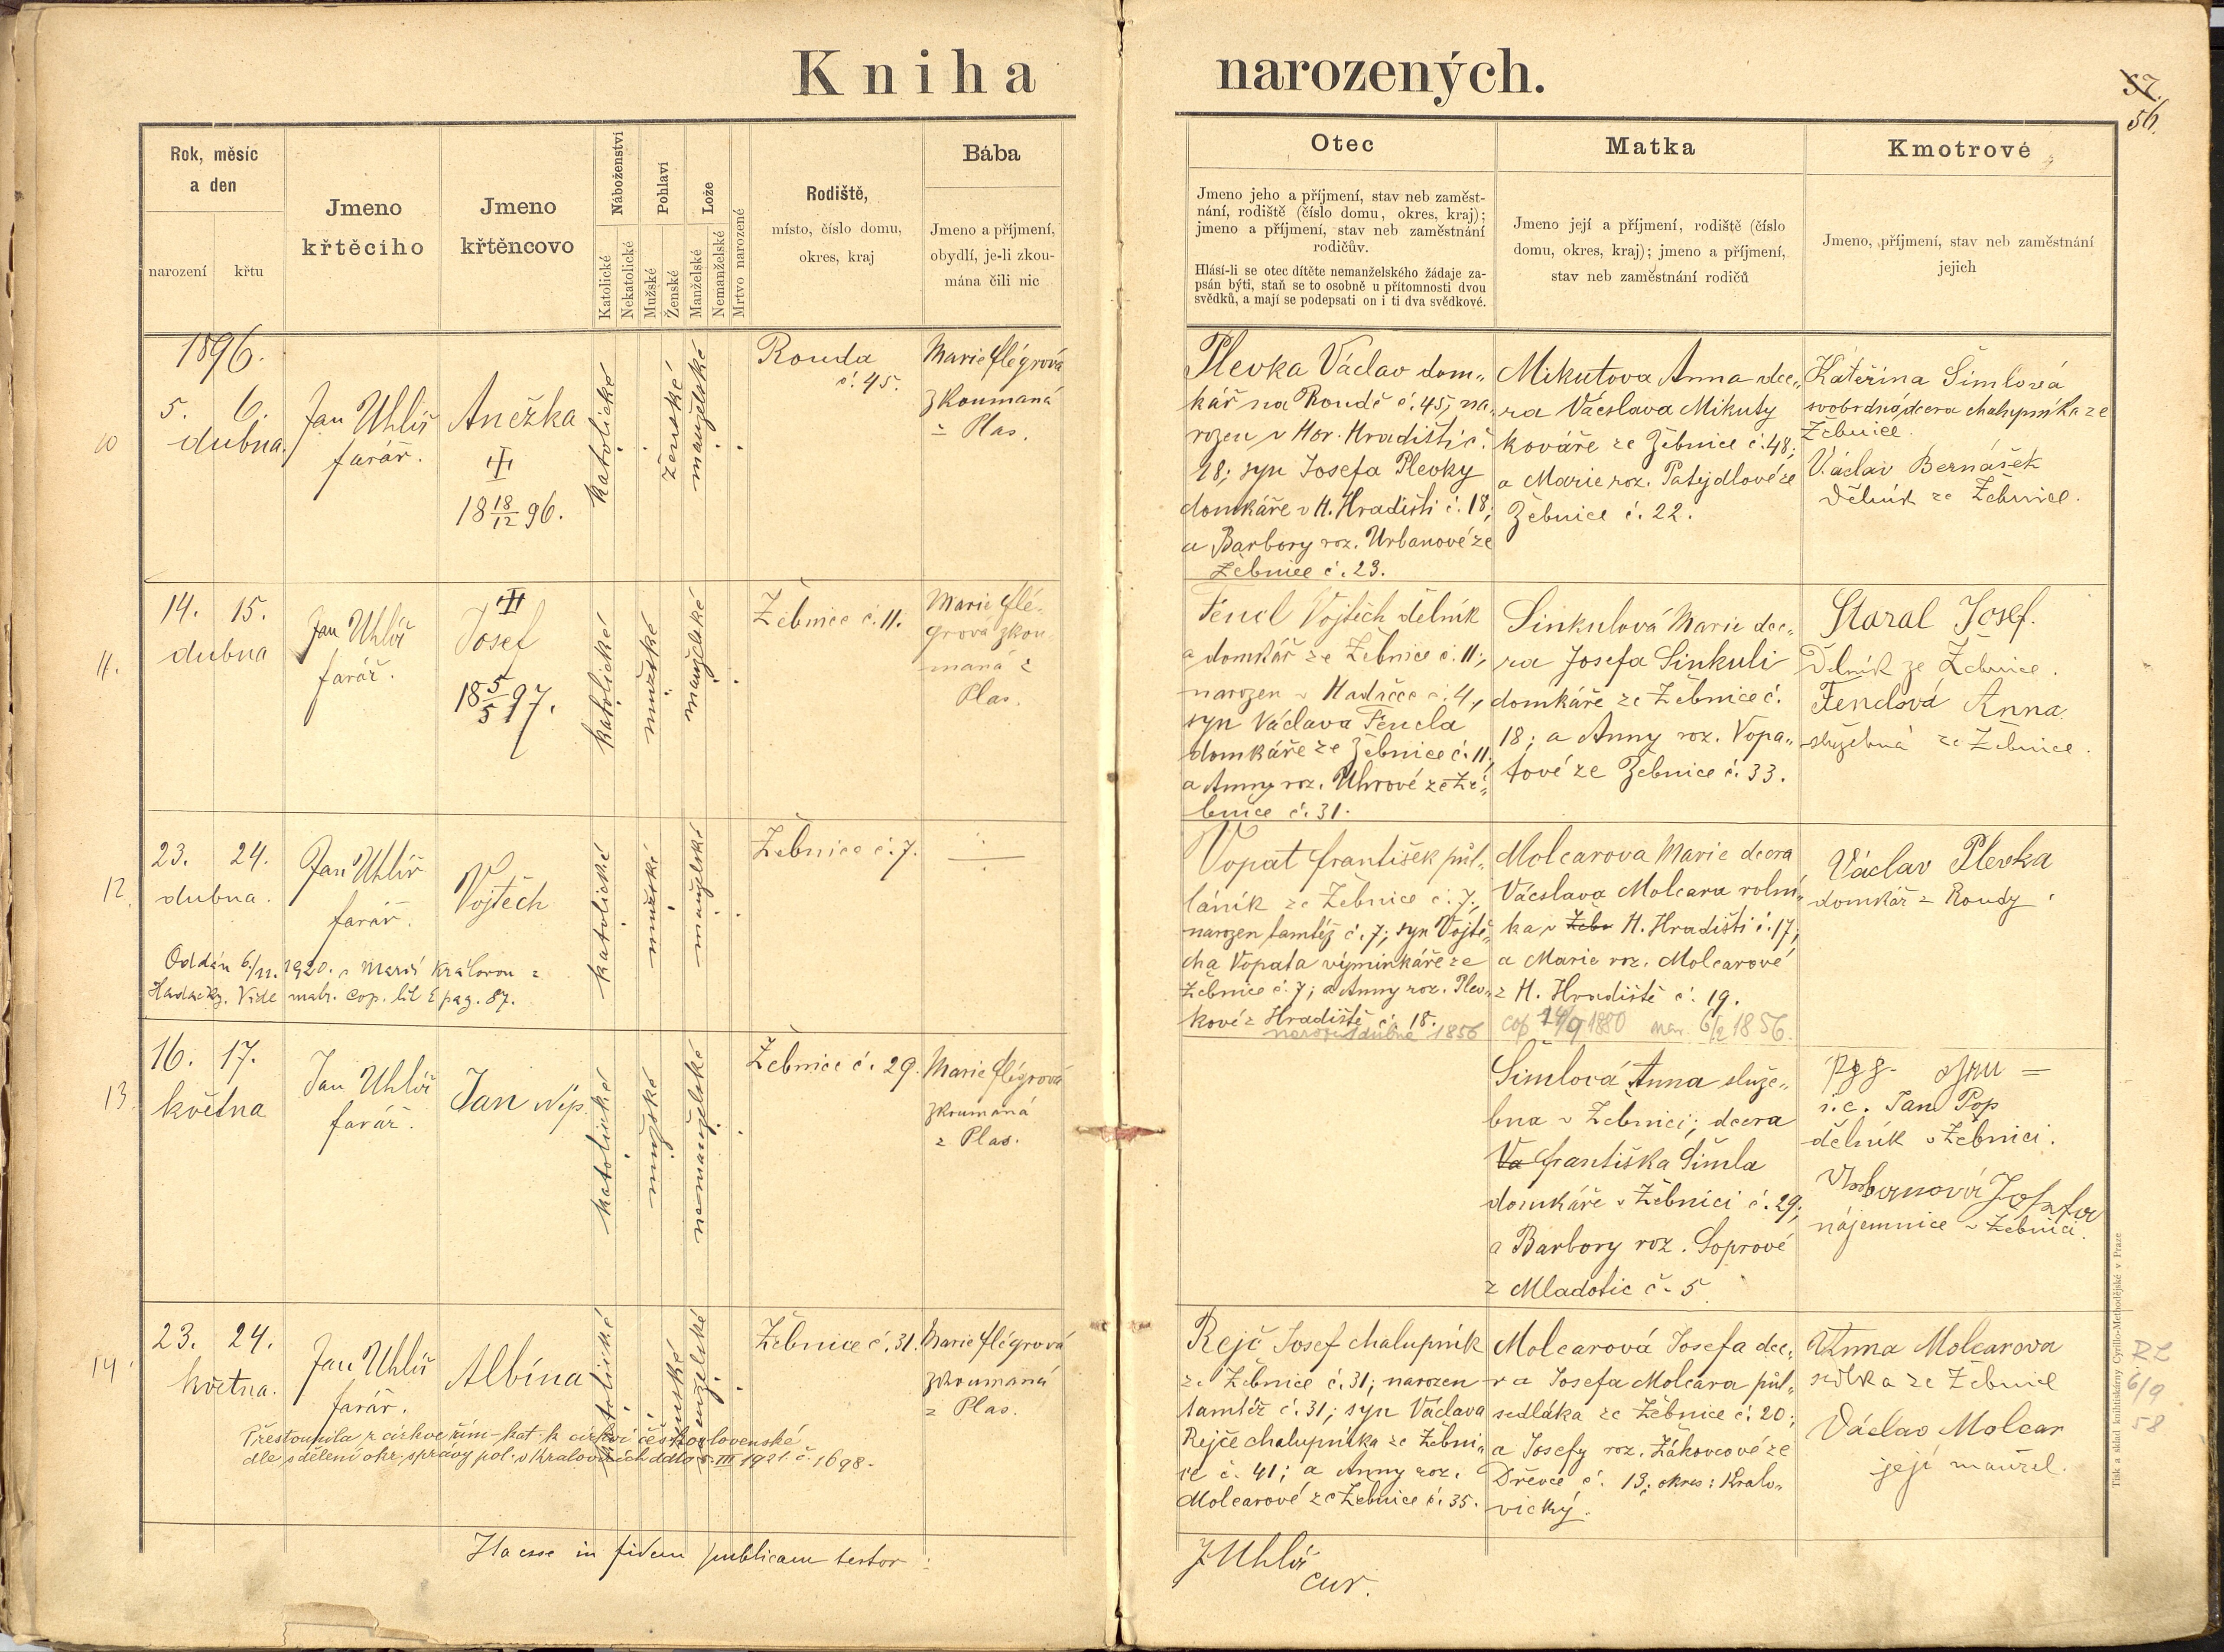 Kniha narozených.
57.
56.
Rok, měsíc
a den
narození
křtu
Jmeno
křtěciho
Jmeno
křtěncovo
Náboženství
Katolické
Nekatolické
Pohlaví
Mužské
Ženské
Lože
Manželské
Nemanželské
Mrtvo narozené
Rodiště,
místo, číslo domu,
okres, kraj
Bába
Jmeno a příjmení,
obydlí, je-li zkou-
mána čili nic
Otec
Jmeno jeho a příjmení, stav neb zaměst-
nání, rodiště (číslo domu, okres, kraj);
jmeno a příjmení, stav neb zaměstnání
rodičův.
Hlásí-li se otec dítěte nemanželského žádaje za-
psán býti, staň se to osobně u přítomnosti dvou
svědků, a mají se podepsati on i ti dva svědkové.
Matka
Jmeno její a příjmení, rodiště (číslo
domu, okres, kraj); jmeno a příjmení,
stav neb zaměstnání rodičů
Kmotrové
Jmeno, příjmení, stav neb zaměstnání
jejich
1896.
10
5. 6.
dubna.
Jan Uhlíř
farář.
Anežka
18 18/12 96.
katolické
ženské
manželské
Rouda
č. 45.
Marie Flégrová
zkoumaná
z Plas.
Plevka Václav dom„
kář na Roudě č. 45, na„
rozen v Hor. Hradišti č.
18; syn Josefa Plevky
domkáře v H. Hradišti č. 18;
a Barbory roz. Urbanové ze
Žebnice č. 23.
Mikutova Anna dce„
ra Vácslava Mikuty
kováře ze Žebnice č. 48;
a Marie roz. Patejdlové ze
Žebnice č. 22.
Kateřina Šimlová
svobodná, dcera chalupníka ze
Žebnice.
Václav Bernášek
dělník ze Žebnice.
11.
14. 15.
dubna
Jan Uhlíř
farář.
Josef
18 5/5 97.
katolické
mužské
manželské
Žebnice č. 11.
Marie Flé„
grová zkou„
maná z
Plas.
Fencl Vojtěch dělník
a domkář ze Žebnice č. 11;
narozen v Hadačce č. 4,
syn Václava Fencla
domkáře ze Žebnice č. 11;
a Anny roz. Uhrové ze Že„
bnice č. 31.
Sinkulová Marie dce„
ra Josefa Sinkuli
domkáře ze Žebnice č.
18; a Anny roz. Vopa„
tové ze Žebnice č. 33.
Staral Josef.
Dělník ze Žebnice.
Fenclová Anna
služebná ze Žebnice.
12.
23. 24.
dubna.
Jan Uhlíř
farář.
Vojtěch
katolické
mužské
manželské
Žebnice č. 7.
Oddán 6./11. 1920. s Marií Královou z
Hadačky. Vide matr. cop. lit E pag. 87.
Vopat František půl„
láník ze Žebnice č. 7.,
narozen tamtéž č. 7; syn Vojtě„
cha Vopata výminkáře ze
Žebnice č. 7; a Anny roz. Plev„
kové z Hradiště č. 18.
narozen dubna 1856
Molcarova Marie dcera
Vácslava Molcara rolní„
ka v Žebn H. Hradišti č. 17;
a Marie roz. Molcarové
z H. Hradiště č. 19.
cop 14/9 1880 nar. 6/2 1856.
Václav Plevka
domkář z Roudy.
13.
16. 17.
května
Jan Uhlíř
farář.
Jan Nep.
katolické
mužské
nemanželské
Žebnice č. 29.
Marie Flégrová
zkoumaná
z Plas.
Šimlová Anna služe„
bna v Žebnici; dcera
Va Františka Šimla
domkáře v Žebnici č. 29;
a Barbory roz. Soprové
z Mladotic č. 5.
i.e. Jan Pop
dělník v Žebnici.
Urbanová Josefa
nájemnice v Žebnici.
14.
23. 24.
května.
Jan Uhlíř
farář.
Albína
katolické
ženské
manželské
Žebnice č. 31.
Marie Flégrová
zkoumaná
z Plas.
Přestoupila z církve řím-kat. k církvi československé
dle sdělení okr. správy pol. v Kralovicích ddto 5. III 1921. č. 1698.
Rejč Josef chalupník
ze Žebnice č. 31; narozen
tamtéž č. 31; syn Václava
Rejče chalupníka ze Žebni„
ce č. 41; a Anny roz.
Molcarové ze Žebnice č. 35.
Molcarová Josefa dce„
ra Josefa Molcara půl„
sedláka ze Žebnice č. 20;
a Josefy roz. Žákovcové ze
Dřevce č. 13; okres: Kralo„
vický.
Anna Molcarova
selka ze Žebnice
Václav Molcar
její manžel.
RL
6/9
58
Ita esse in fidem publicam testor:
J Uhlíř
cur.
Tisk a sklad knihtiskárny Cyrillo-Methodějské v Praze